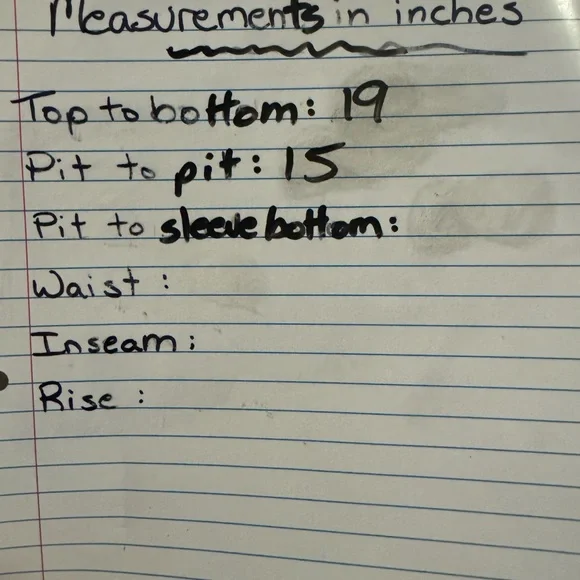 Measurements in inches
Top to bottom: 19
Pit to pit: 15
Pit to sleeve bottom:
Waist :
Inseam :
Rise :